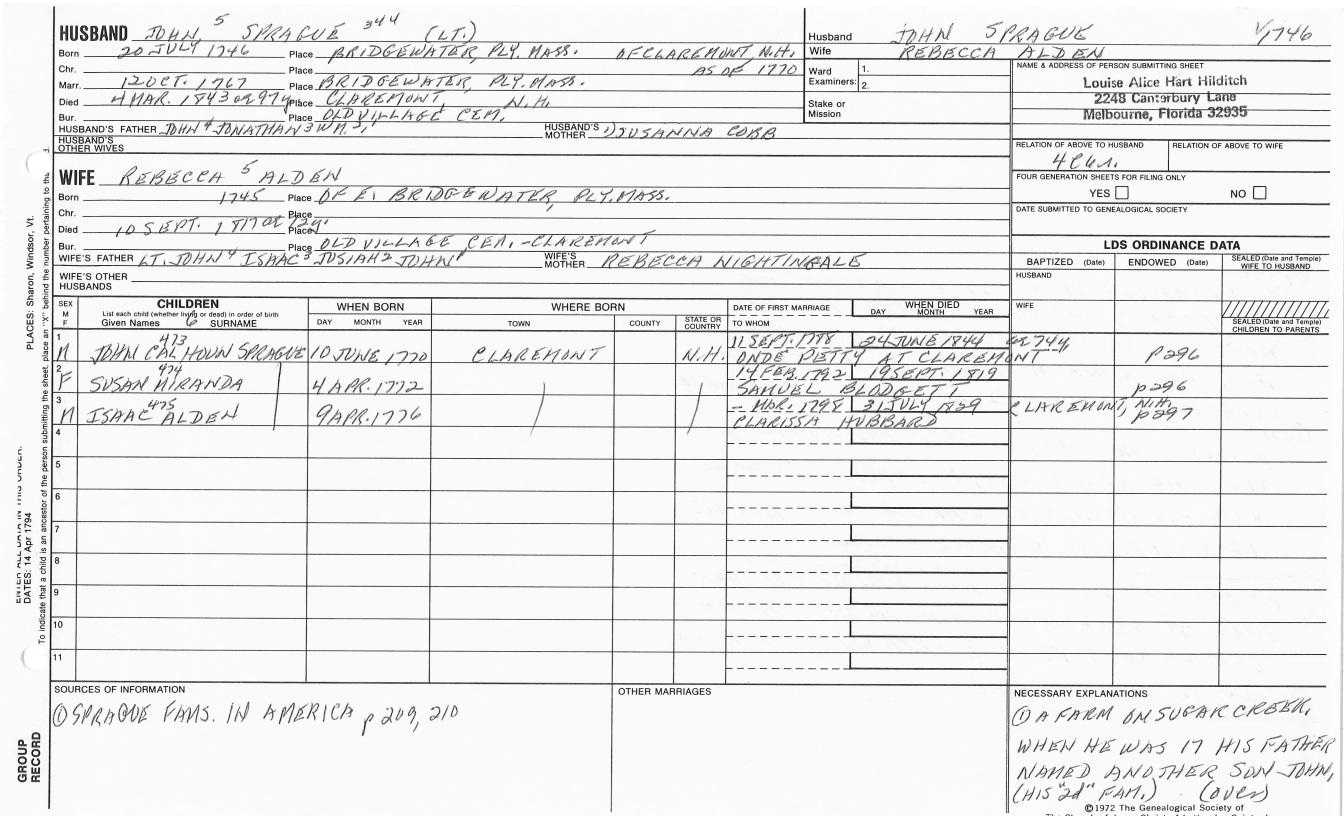 HUSBAND JOHN 5 SPRAGUE 344 (LT.)
Born 20 JULY 1746 Place BRIDGEWATER, PLY. MASS. OF CLAREMONT, N.H.
Chr. Place AS OF 1770
Marr. 12 OCT. 1767 Place BRIDGEWATER, PLY. MASS.
Died 4 MAR. 1843 or 97y Place CLAREMONT, N.H.
Bur. Place OLD VILLAGE CEM.
HUSBAND'S FATHER JOHN 4 JONATHAN 3 WM. 2, 1 HUSBAND'S MOTHER 1) SUSANNA COBB
HUSBAND'S OTHER WIVES
WIFE REBECCA 5 ALDEN
Born 1745 Place OF E. BRIDGEWATER, PLY. MASS.
Chr. Place
Died 10 SEPT. Place
Bur. Place OLD VILLAGE CEM.-CLAREMONT
WIFE'S FATHER LT. JOHN 4 ISAAC 3 JOSIAH 2 JOHN 1 WIFE'S MOTHER REBECCA NIGHTINGALE
WIFE'S OTHER HUSBANDS
Husband JOHN SPRAGUE V1746
Wife REBECCA ALDEN
Ward Examiners: 1.
2.
Stake or Mission
NAME & ADDRESS OF PERSON SUBMITTING SHEET
Louise Alice Hart Hilditch
2248 Canterbury Lane
Melbourne, Florida 32935
RELATION OF ABOVE TO HUSBAND RELATION OF ABOVE TO WIFE
FOUR GENERATION SHEETS FOR FILING ONLY
YES NO
DATE SUBMITTED TO GENEALOGICAL SOCIETY
LDS ORDINANCE DATA
BAPTIZED (Date) ENDOWED (Date) SEALED (Date and Temple) WIFE TO HUSBAND
HUSBAND
WIFE
SEALED (Date and Temple) CHILDREN TO PARENTS
SEX M F CHILDREN WHEN BORN WHERE BORN DATE OF FIRST MARRIAGE WHEN DIED
List each child (whether living or dead) in order of birth
Given Names 6 SURNAME DAY MONTH YEAR TOWN COUNTY STATE OR COUNTRY TO WHOM DAY MONTH YEAR
1 M 473 JOHN CALHOUN SPRAGUE 10 JUNE 1770 CLAREMONT N.H. 11 SEPT. 1778 24 JUNE 1844 or 74y
ONDE PETTY AT CLAREMONT p 296
2 F 474 SUSAN MIRANDA 4 APR. 1772 14 FEB. 1792 19 SEPT. 1819
SAMUEL BLODGETT p 296
3 M 475 ISAAC ALDEN 9 APR. 1776 - MAR. 1798 31 JULY 1829 CLAREMONT, N.H.
CLARISSA HUBBARD p 297
4
5
6
7
8
9
10
11
SOURCES OF INFORMATION
① SPRAGUE FAMS. IN AMERICA p 209, 210
OTHER MARRIAGES
NECESSARY EXPLANATIONS
① A FARM ON SUGAR CREEK,
WHEN HE WAS 17 HIS FATHER
NAMED ANOTHER SON JOHN,
(HIS "2d" FAM.) (over)
©1972 The Genealogical Society of
PLACES: Sharon, Windsor, Vt.
DATES: 14 Apr 1794
To indicate that a child is an ancestor of the person submitting the sheet, place an "X" behind the number pertaining to the
GROUP RECORD